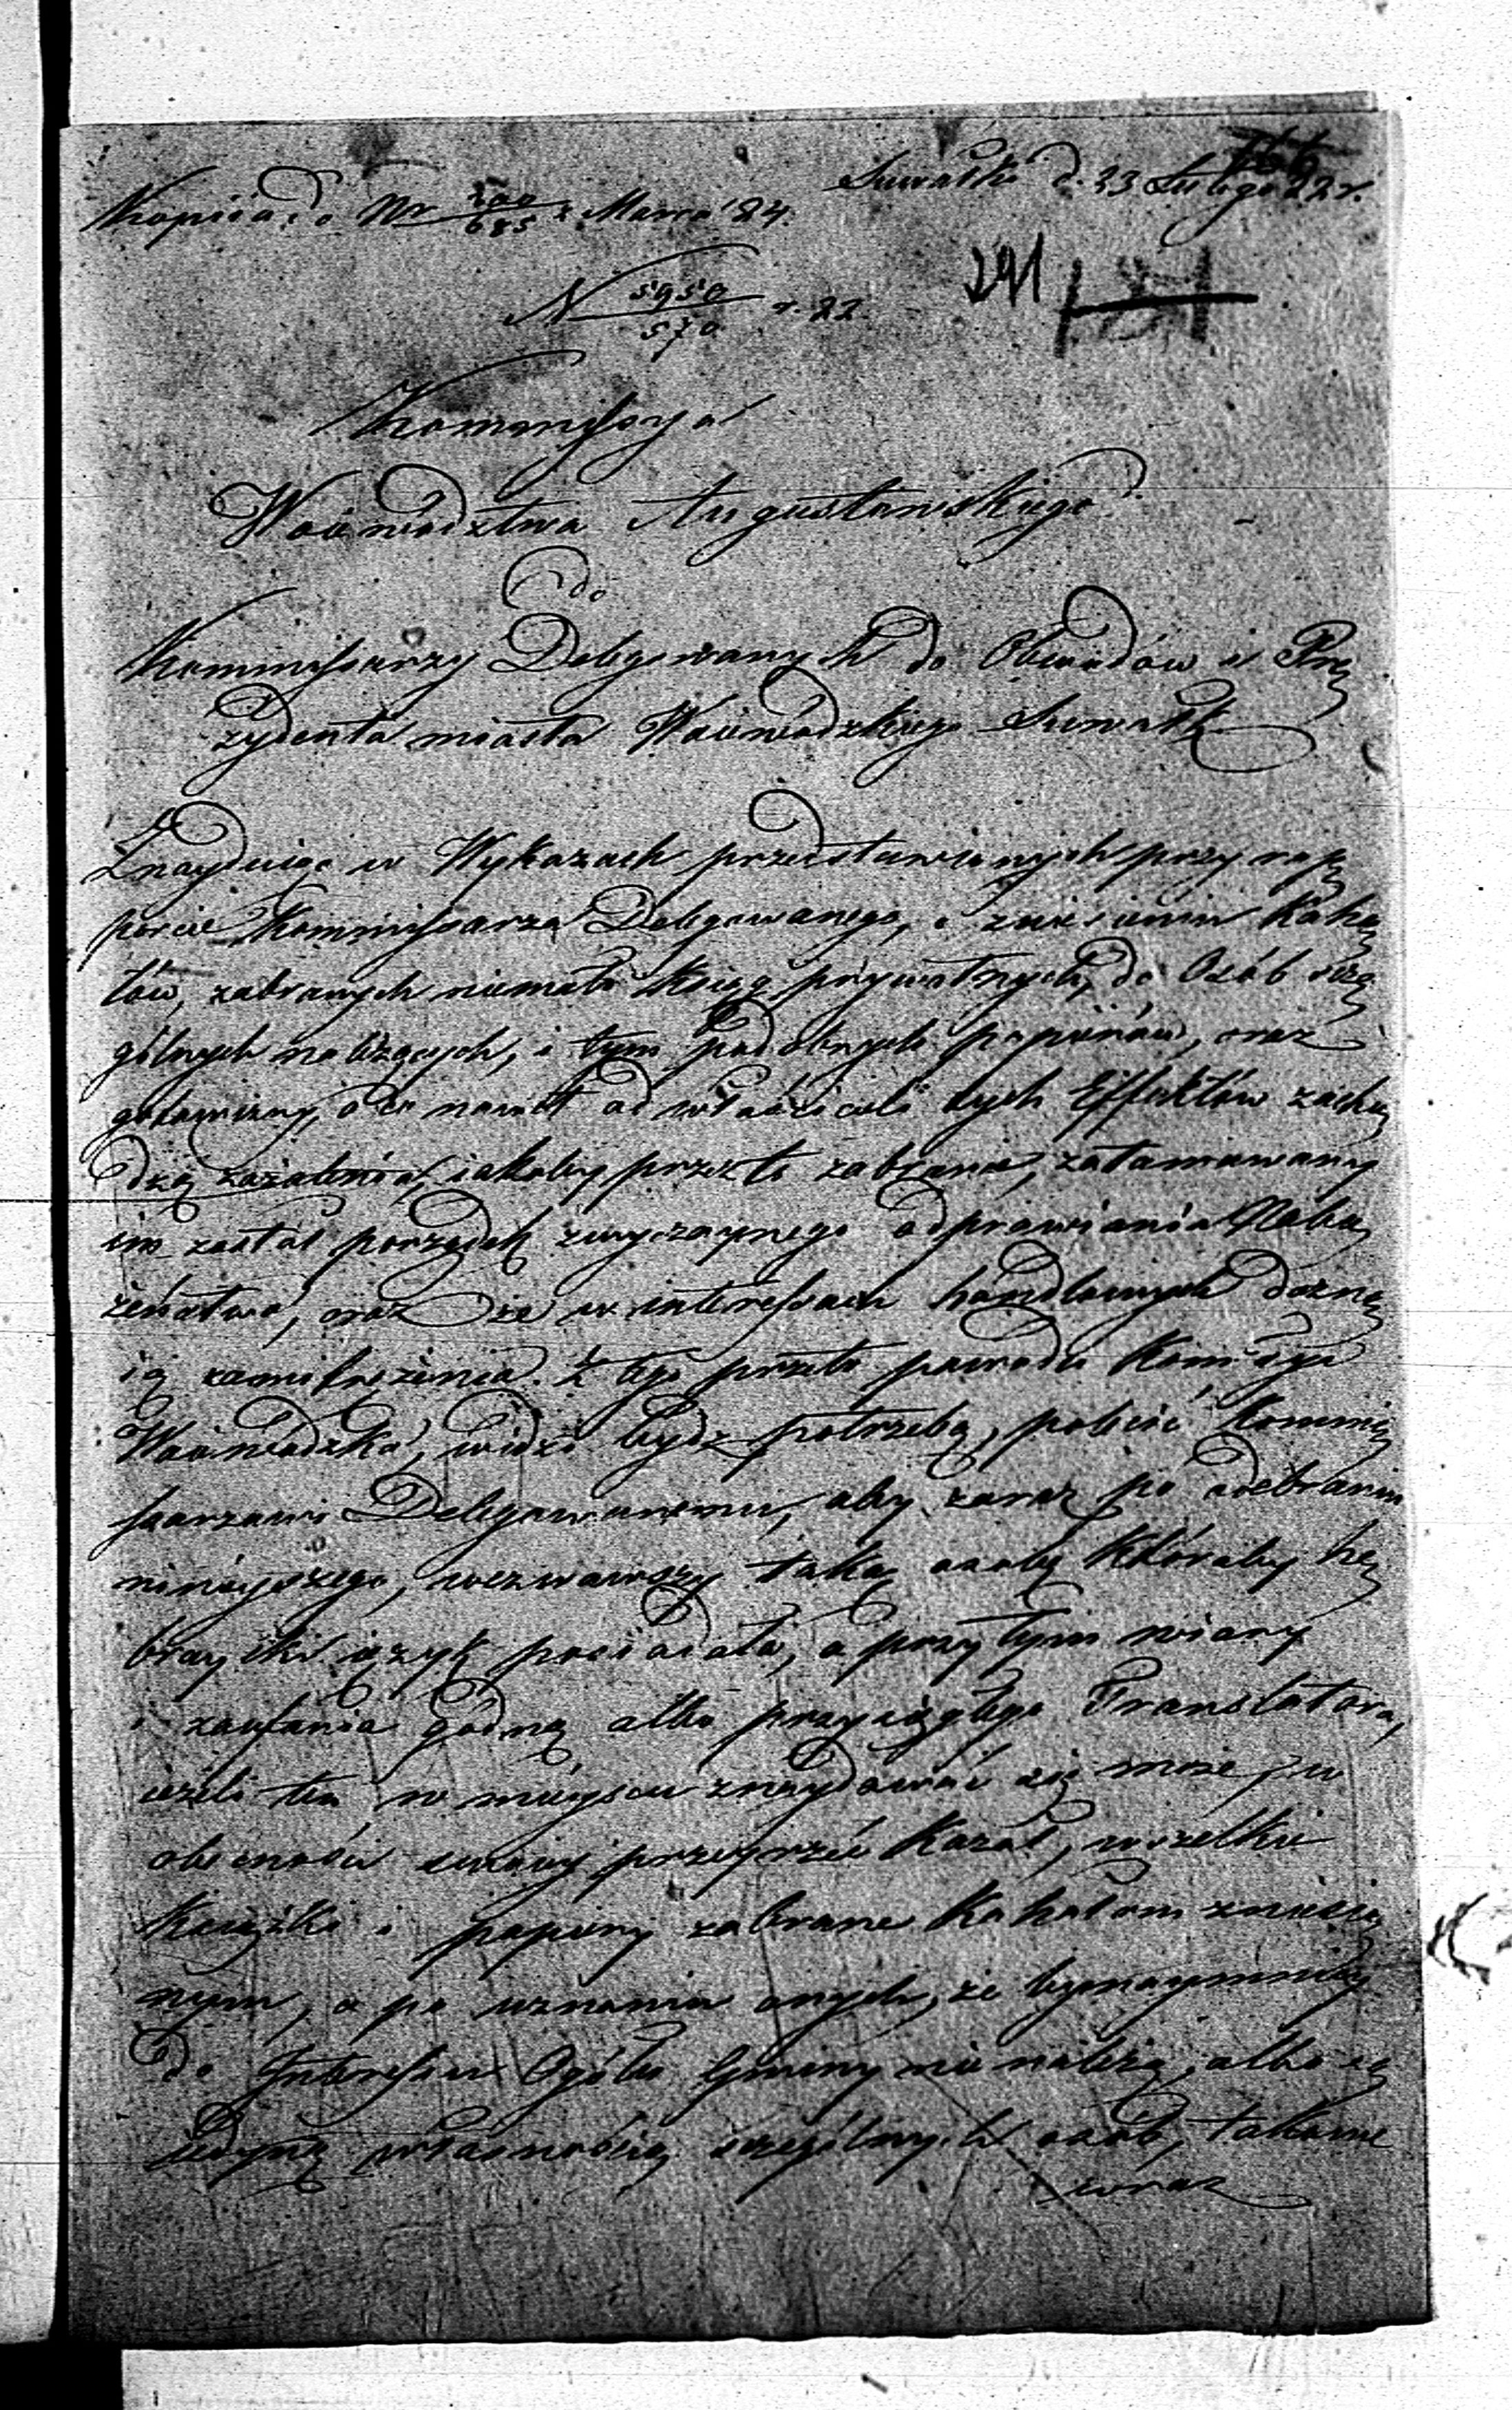 Suwałki d. 23 Lutego 22 r.
Kopiia do Nr 200/685 z Marca 24.
291
N 5950/570 r. 22.
Kommissya
Woiewództwa Augustowskiego
do
Kommissarzy Delegowanych do Obwodów i Pre
zydenta miasta Woiewódzkiego Suwałk
Znayduiąc w Wykazach przedstawionych przy rap
porcie Kommissarza Delegowanego, o zniesieniu Kaha
łów, zabranych niemało Ksiąg prywatnych, do Osób szcze
gólnych należących, i tym podobnych papierów, oraz
gotowizny, o co nawet od właścicieli tych Effektów zacho
dzą zażalenia, iakoby przez to zabranie, zatamowany
im został porządek zwyczaynego odprawiania Nabo
żeństwa, oraz że w interessach handlowych dozna
ią zamitrężenia. Z tego przeto powodu Kommissya
Woiewódzka, widzi bydź potrzebą, polecić Kommis
sarzowi Delegowanemu, aby zaraz po odebraniu
ninieyszego, wezwawszy taką osobę któraby he
brayski ięzyk posiadała, a przytym wiary
i zaufania godną albo przysięgłego Translatora,
ieżeli ten w mieyscu znaydować się może, w
obecności swoiey przeyrzeć kazał, wszelkie
Książki i papiery zabrane Kahałom zniesio
nym, a po uznaniu onych, że bynaymniey
do Interessu Ogółu Gminy nie należą, albo są
iedyną własnością szczególnych osób, takowe
wraz